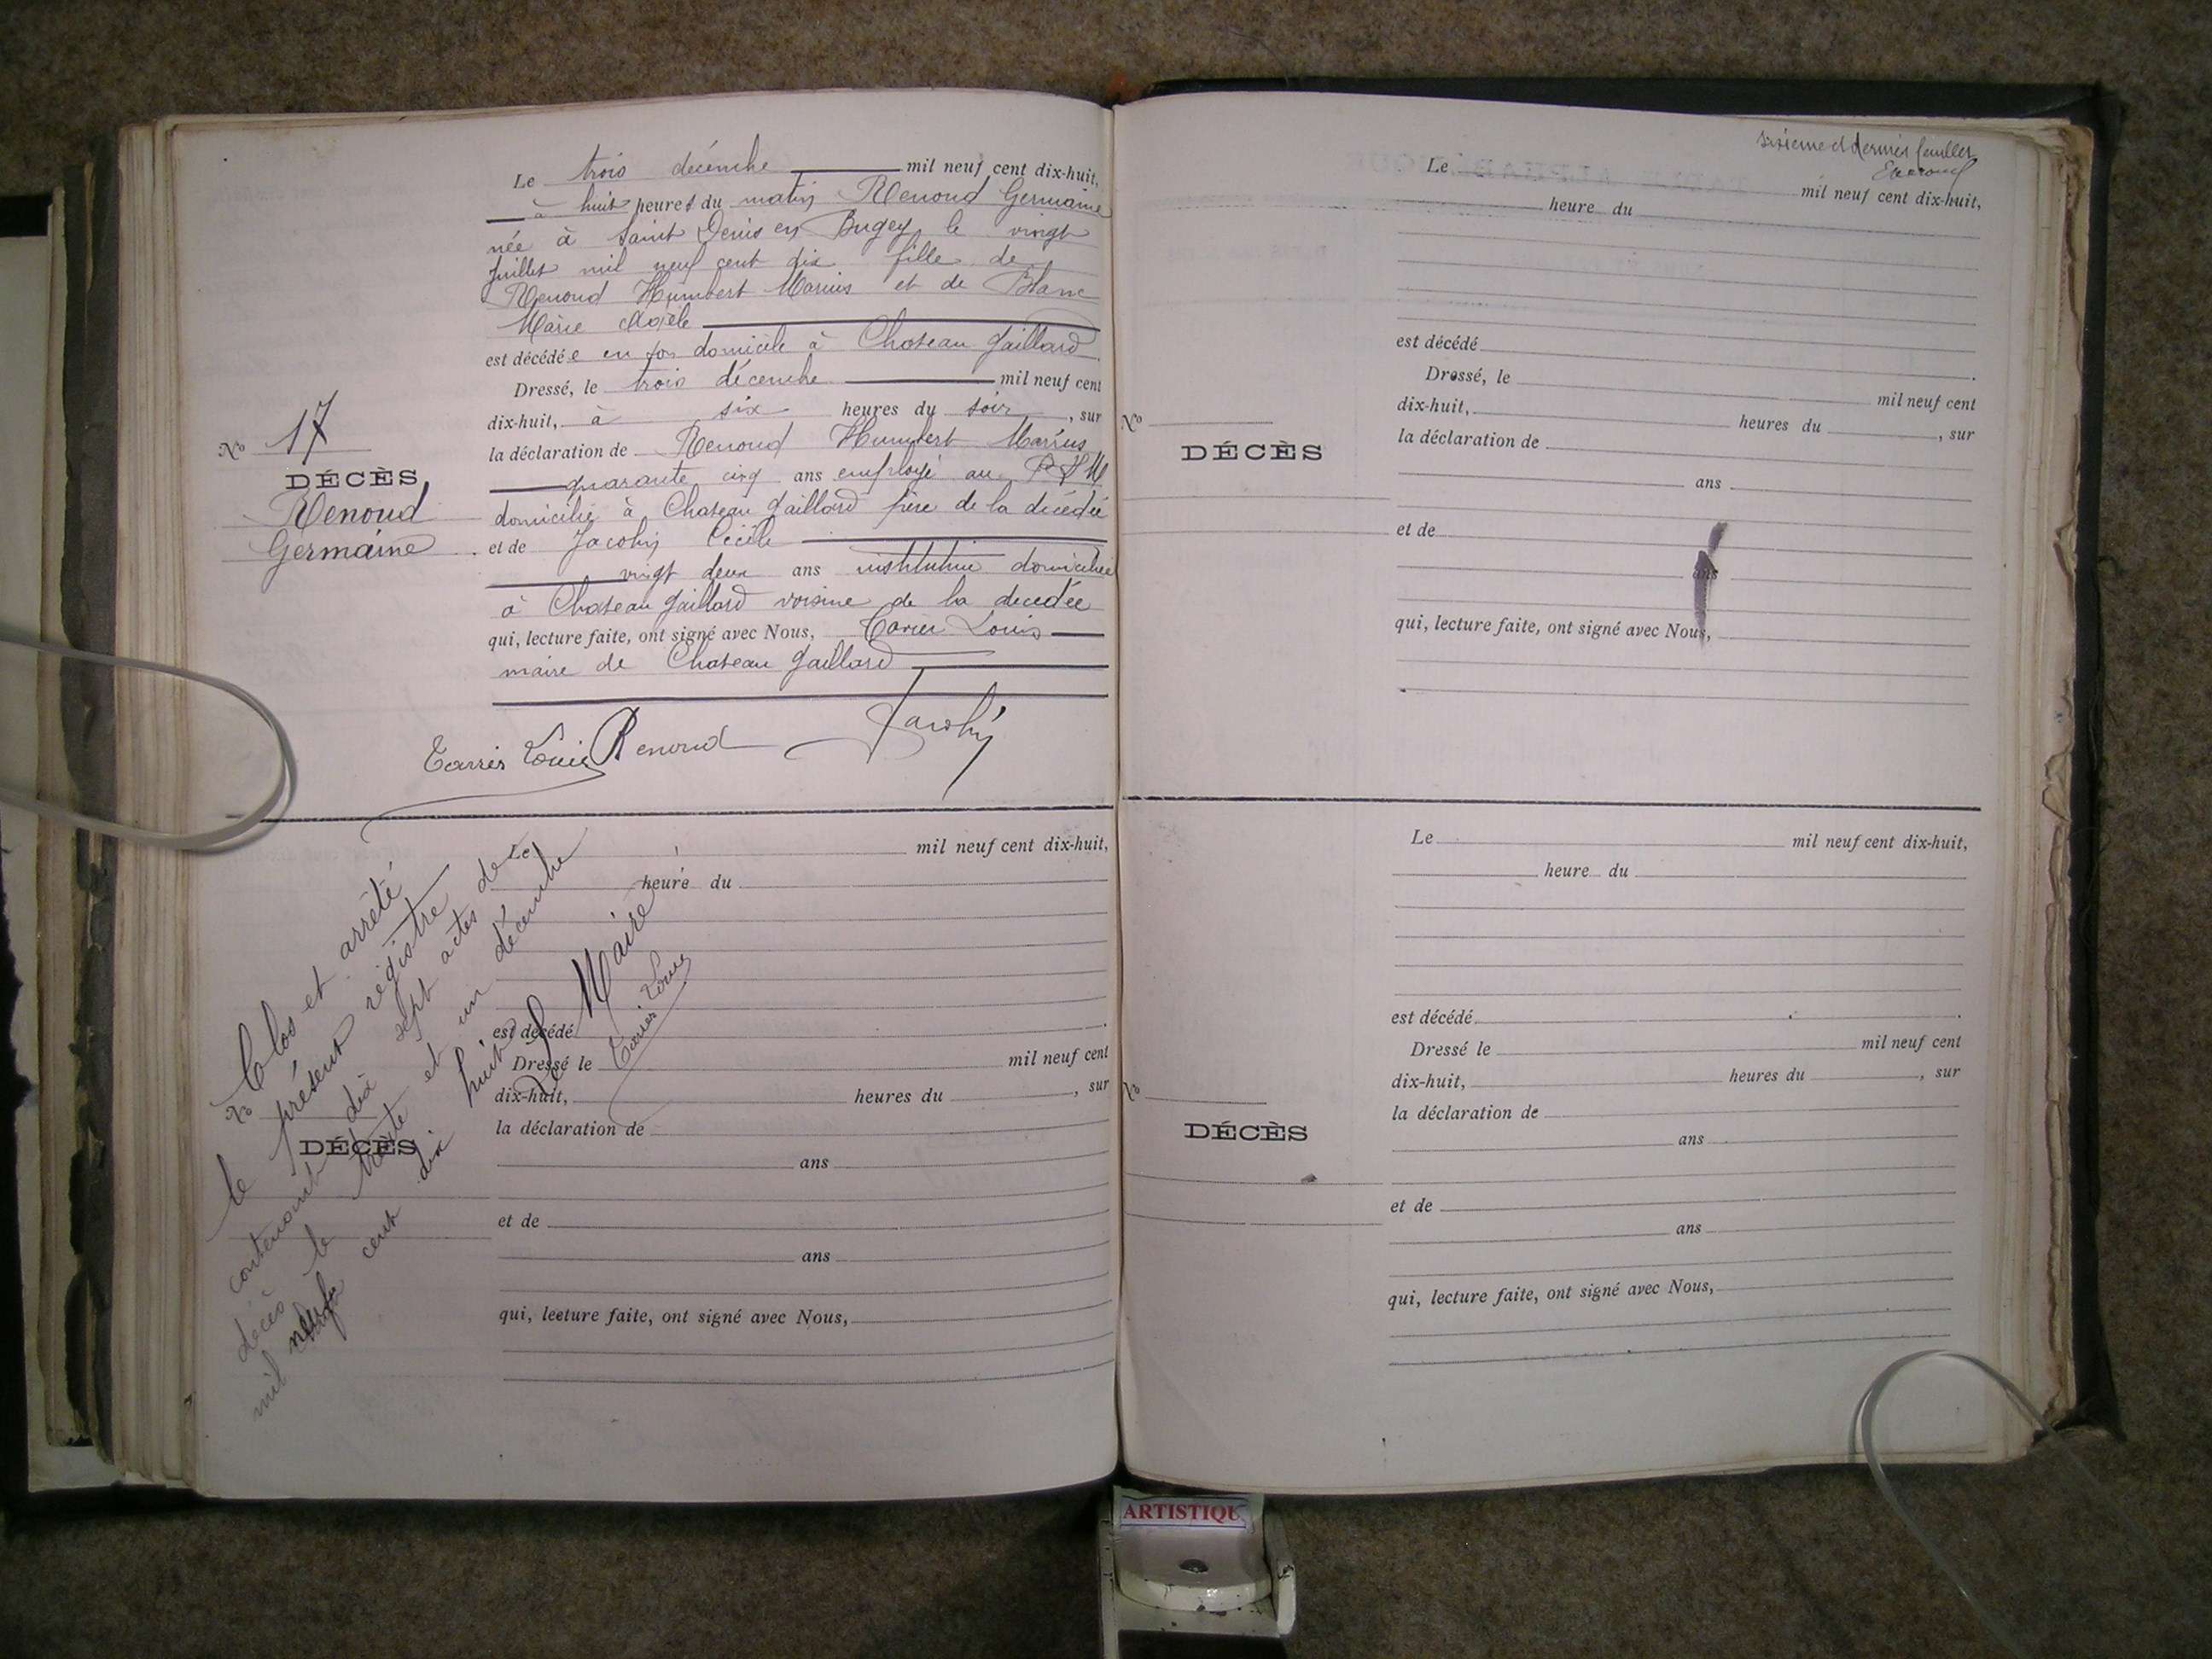 Le trois décembre mil neuf cent dix-huit,
à huit heures du matin Renoud Germaine
née à Saint Denis en Bugey le vingt
juillet mil neuf cent dix fille de
Renoud Humbert Marius et de Blanc
Marie
est décédée en son domicile à Chateau Gaillard
Dressé, le trois décembre mil neuf cent
dix-huit, à six heures du soir, sur
la déclaration de Renoud Humbert Marius
quarante cinq ans employé au P L M
domicilié à Chateau Gaillard père de la décédée
et de Jacohy Cécile
vingt deux ans institutrice domiciliée
à Chateau Gaillard voisine de la decedée
qui, lecture faite, ont signé avec Nous, Louis
maire de Chateau Gaillard
Louis Renoud
No 17
DÉCÈS
Renoud
Germaine
Clos et arrêté
le présent registre
contenant dix sept actes de
décès le trente et un décembre
mil neuf cent dix huit
Le Maire
Louis
No
DÉCÈS
Le mil neuf cent dix-huit,
heure du
est décédé
Dressé le mil neuf cent
dix-huit, heures du , sur
la déclaration de
ans
et de
ans
qui, lecture faite, ont signé avec Nous,
sixième et dernier feuillet
Le mil neuf cent dix-huit,
heure du
est décédé
Dressé, le mil neuf cent
dix-huit, heures du , sur
la déclaration de
ans
et de
ans
qui, lecture faite, ont signé avec Nous,
No
DÉCÈS
Le mil neuf cent dix-huit,
heure du
est décédé
Dressé le mil neuf cent
dix-huit, heures du , sur
la déclaration de
ans
et de
ans
qui, lecture faite, ont signé avec Nous,
No
DÉCÈS
ARTISTIQU